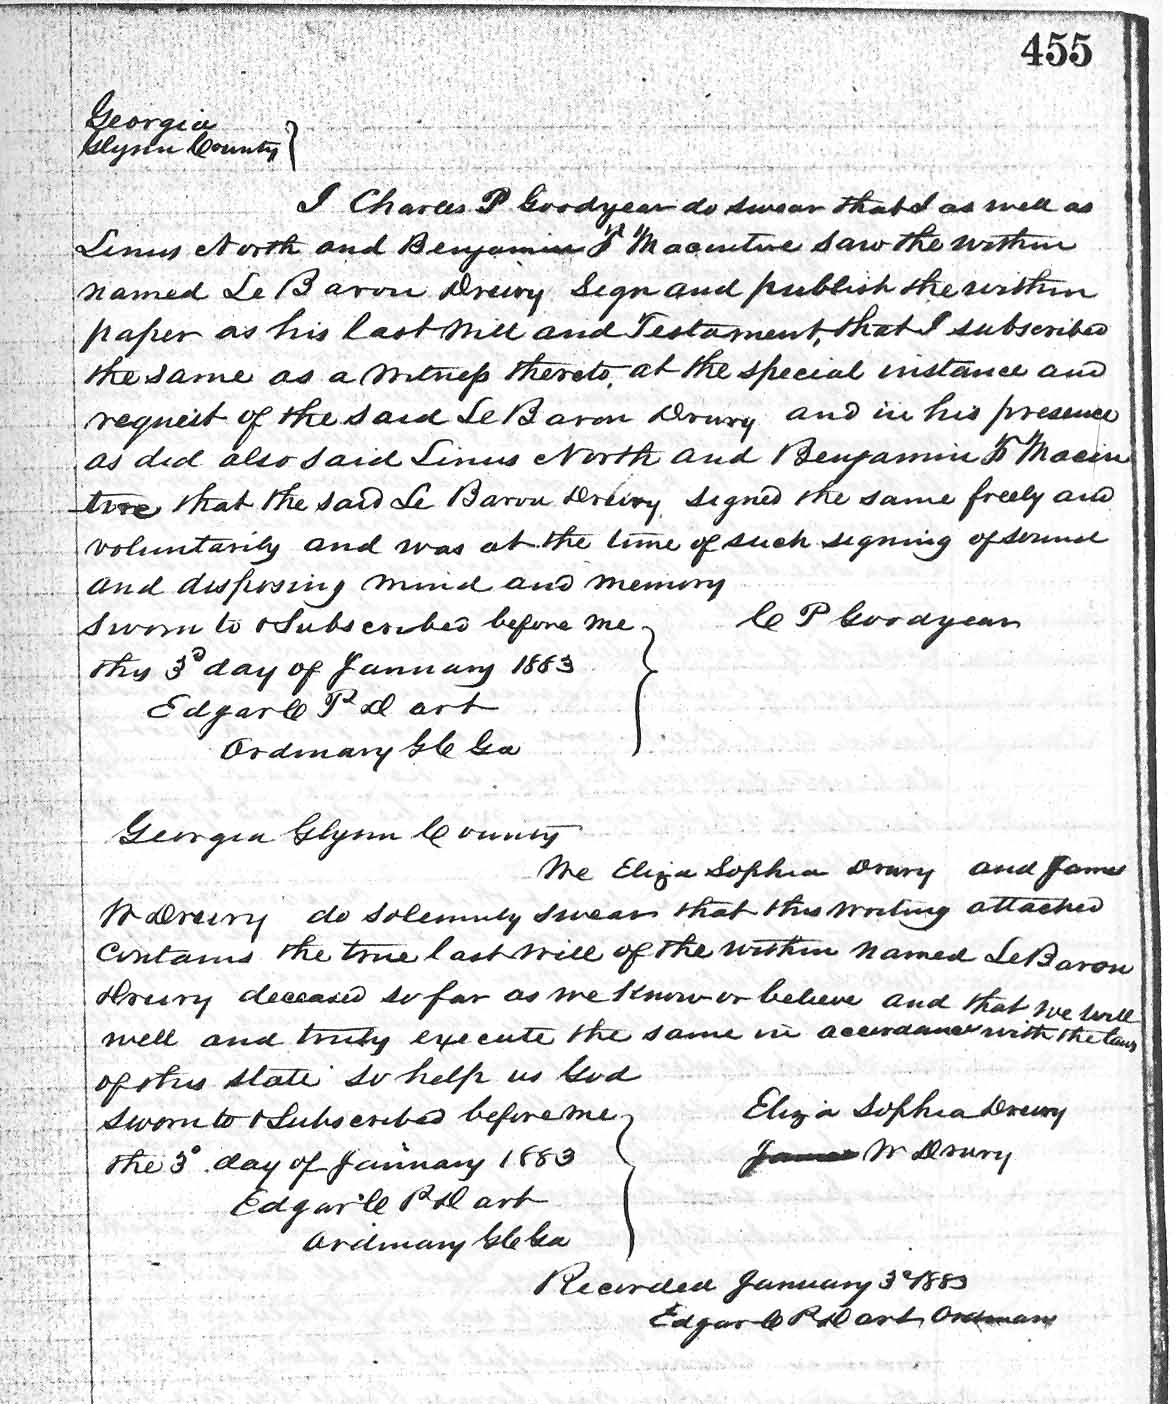 455
Georgia
Glynn County
I Charles P Goodyear do swear that I as well as
Linus North and Benjamin F Macintire saw the within
named Le Baron Drury Sign and publish the within
paper as his last Will and Testament, that I subscribed
the same as a witness thereto, at the special instance and
request of the said Le Baron Drury and in his presence
as did also said Linus North and Benjamin F Macin
tire that the said Le Baron Drury signed the same freely and
voluntarily and was at the time of such signing of sound
and disposing mind and memory
Sworn to & Subscribed before me C P Goodyear
this 3d day of January 1883
Edgar C P Dart
Ordinary G C Ga
Georgia Glynn County
We Eliza Sophia Drury and James
W Drury do solemnly swear that this writing attached
contains the true last will of the within named LeBaron
Drury deceased so far as we know or believe and that we will
well and truly execute the same in accordance with the laws
of this state so help us God
Sworn to & Subscribed before me Eliza Sophia Drury
the 3d day of January 1883 James W Drury
Edgar C P Dart
Ordinary G C Ga
Recorded January 3d 1883
Edgar C P Dart Ordinary